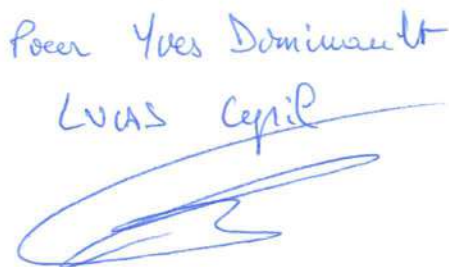 Pour Yves Dominault
LUCAS Cyril